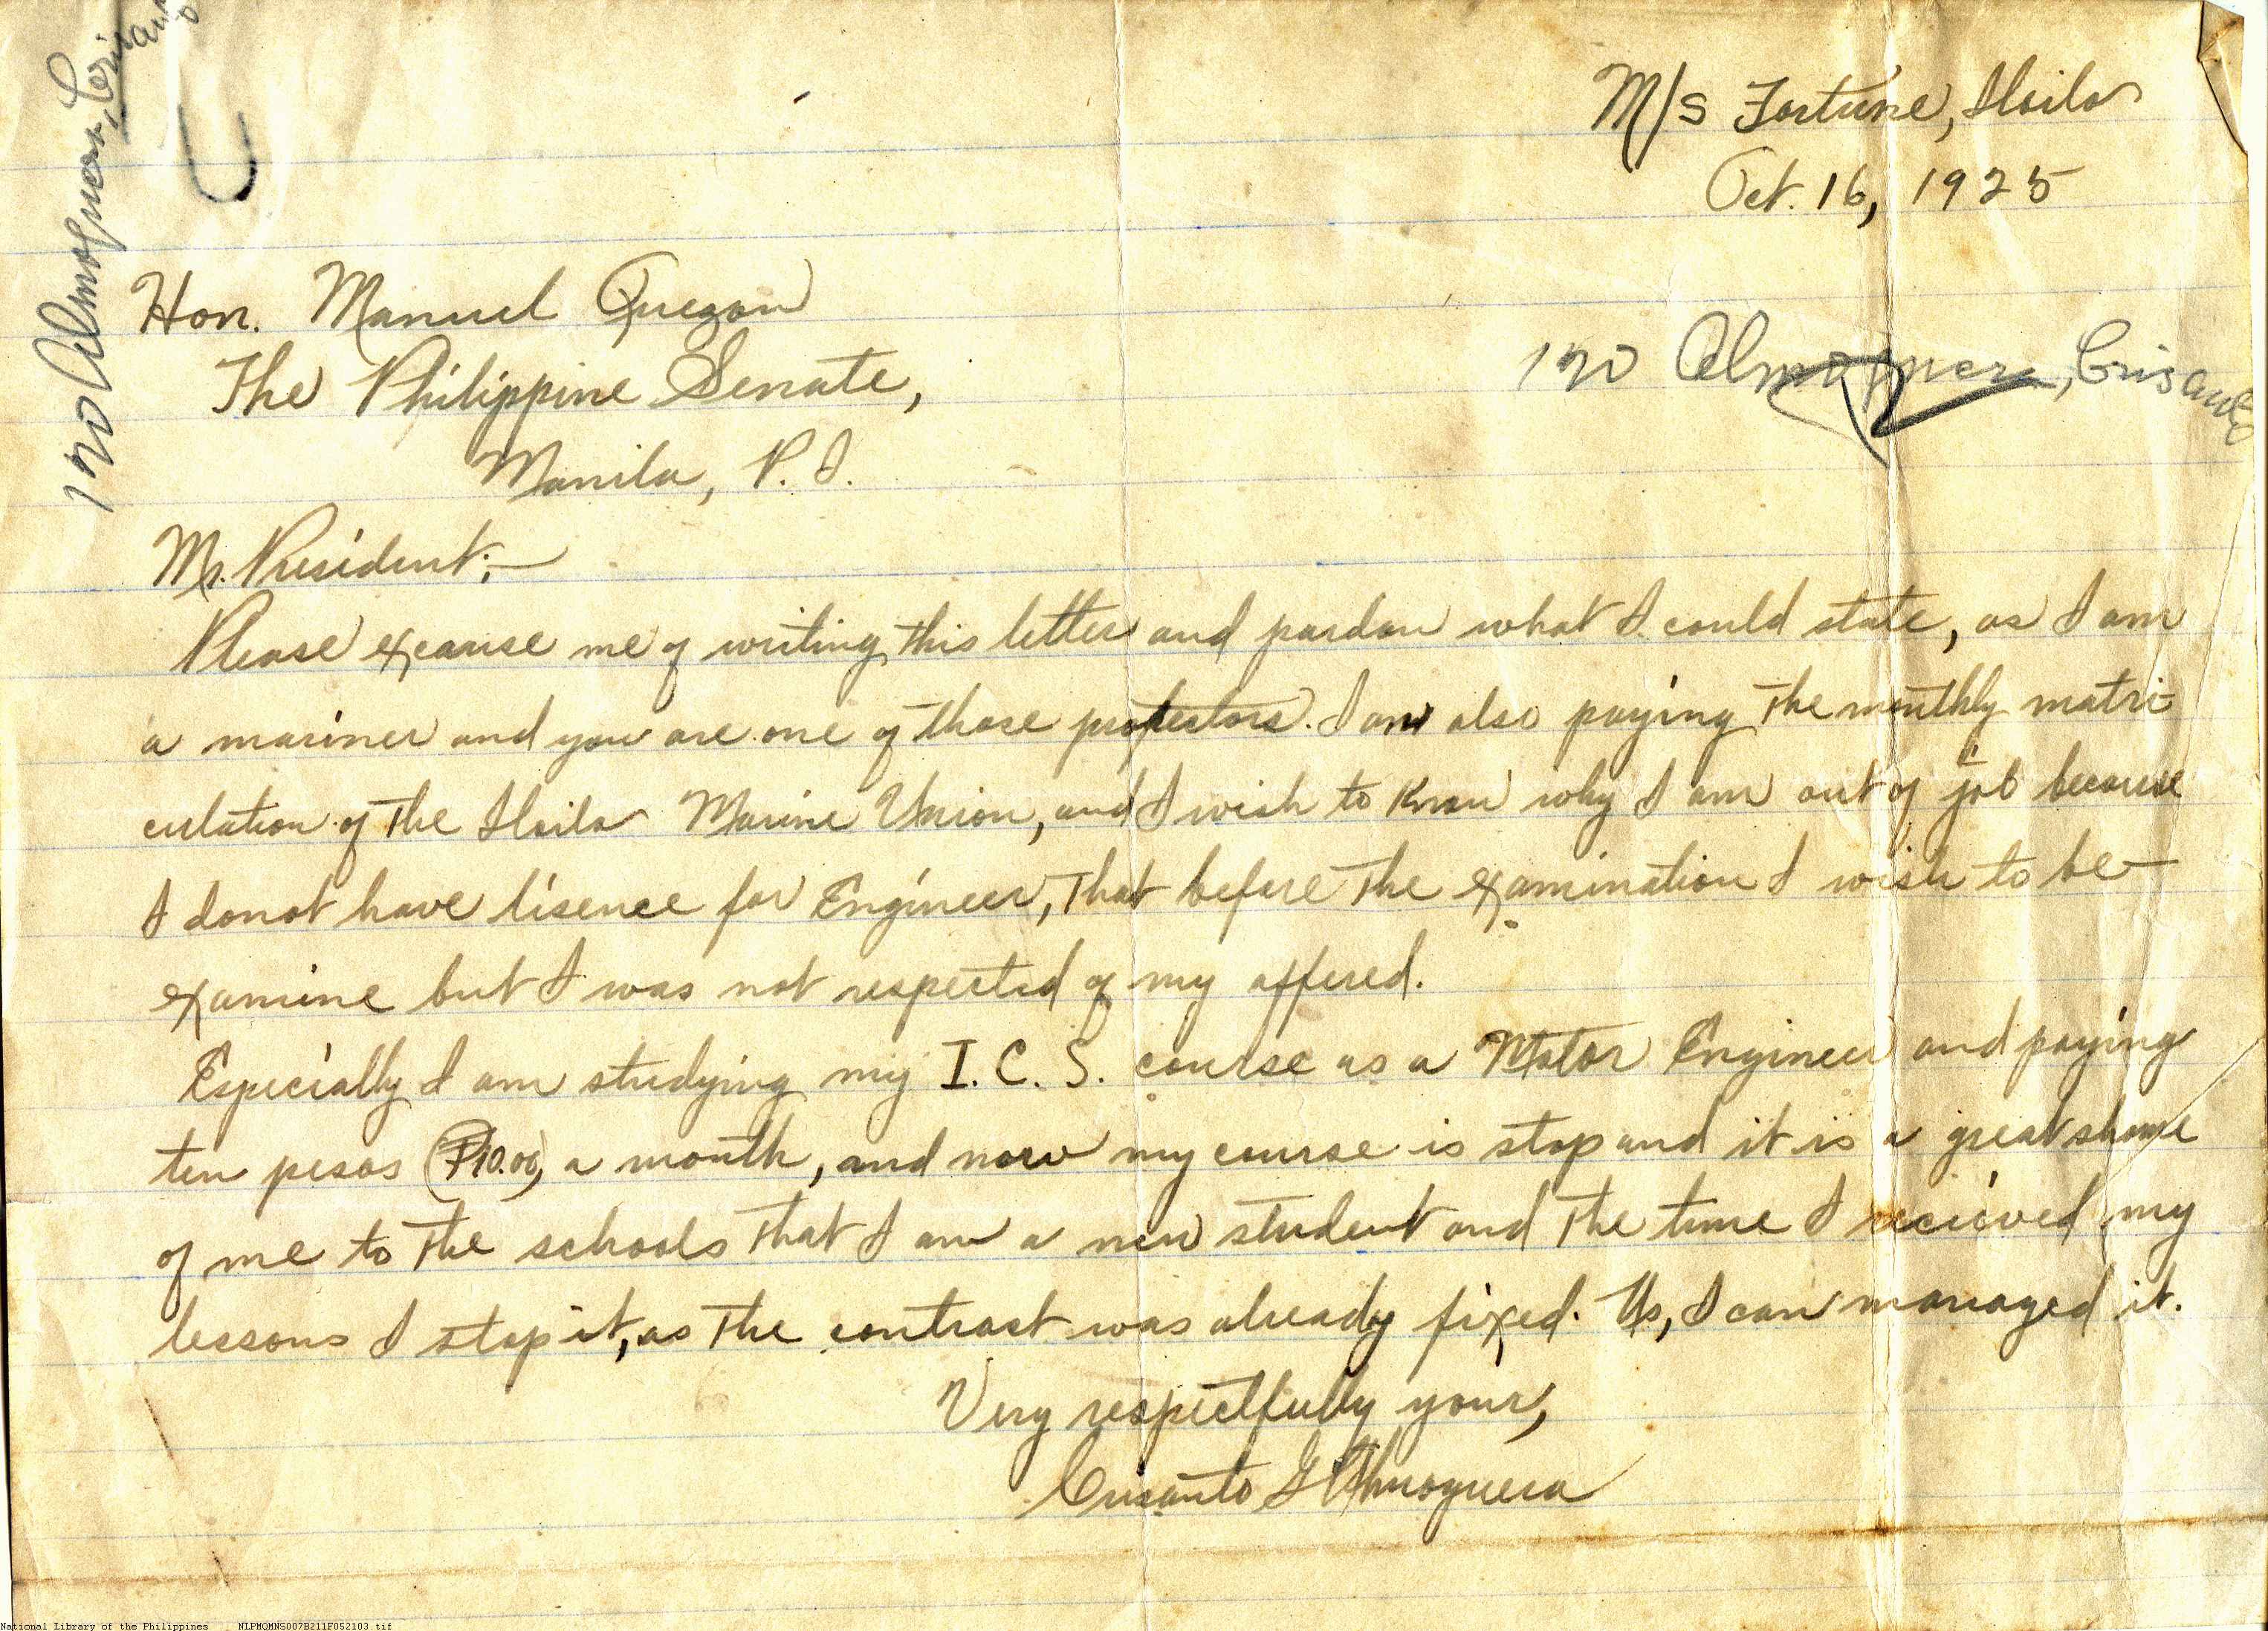 M/S Fortune, Iloilo
Oct. 16, 1925
120 Almoguera, Cris
Hon. Manuel Quezon
The Philippine Senate,
Manila, P. I.
120 Almoguera, Crisanto
Mr. President;—
Please excause me of writing this letter and pardon what I could state, as I am
a mariner and you are one of those protectors. I am also paying the monthly matri-
culation of the Iloilo Marine Union, and I wish to know why I am out of job because
I donot have lisence for Engineer, that before the examination I wish to be
examine but I was not respected of my offered.
Especially I am studying my I. C. S. course as a Motor Engineer and paying
ten pesos (₱10.00) a month, and now my course is stop and it is a great shame
of me to the schools that I am a new student and the time I recieved my
lessons I stop it, as the contract was already fixed. I can managed it.
Very respectfully your,
Crisanto G Almoguera
National Library of the Philippines NLPMQMNS007B211F052103.tif